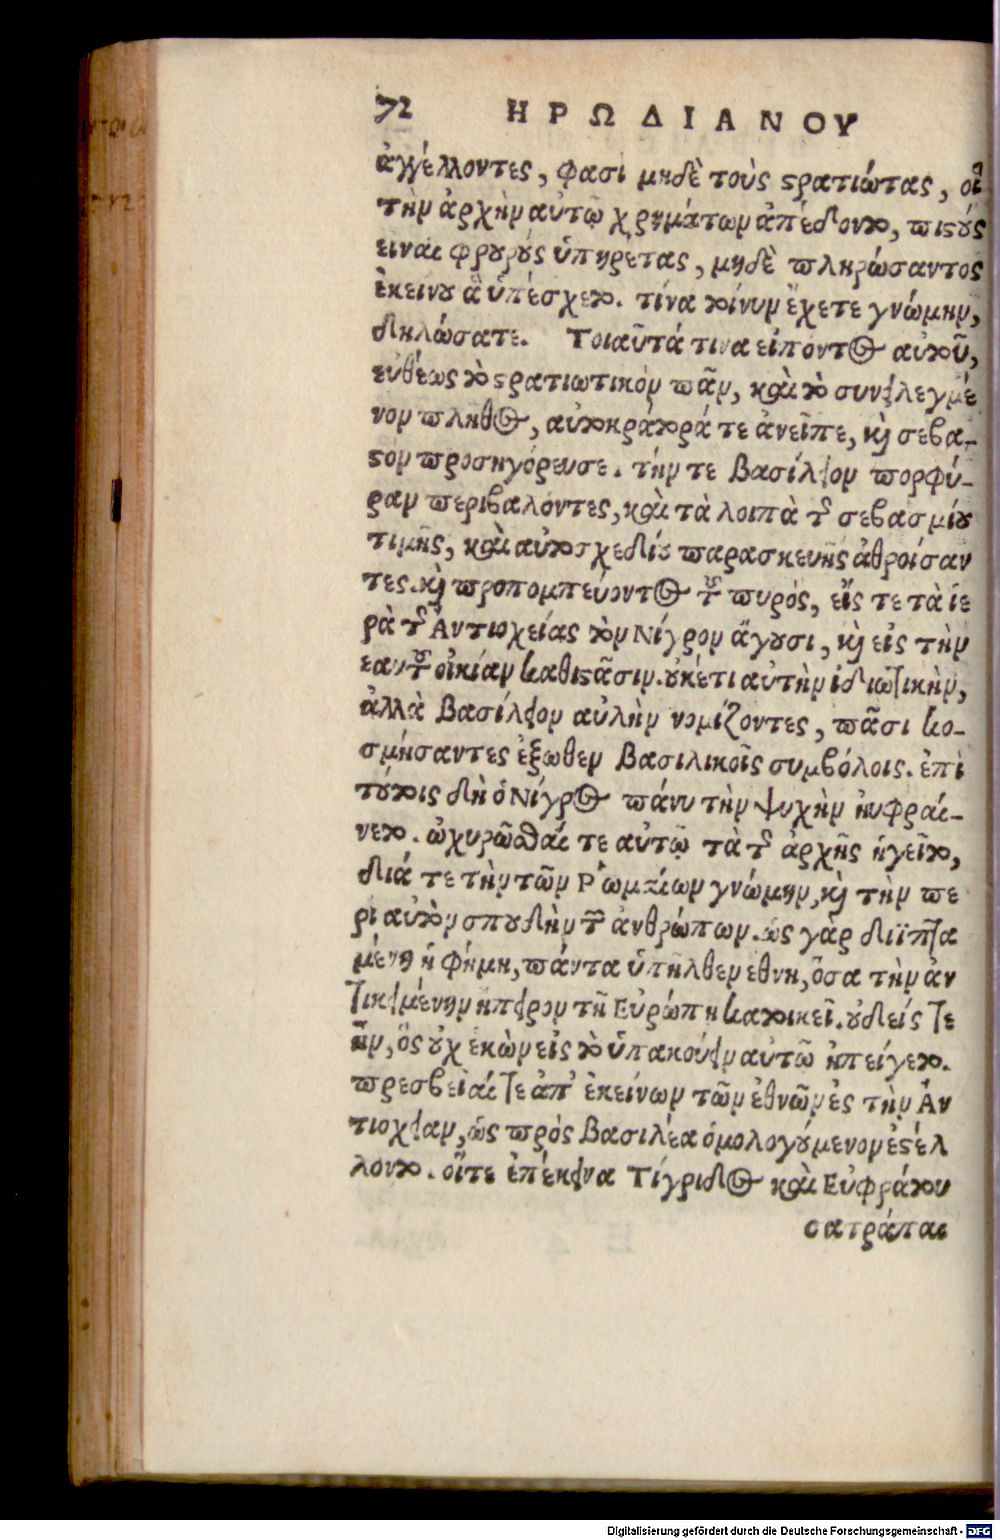 72 ΗΡΩΔΙΑΝΟΥ
ἀγγέλλοντες, φασὶ μηδὲ τοὺς στρατιώτας, οἳ
τὴν ἀρχὴν αὐτῷ χρημάτων ἀπέδοντο, πιστοὺς
εἶναι φρουροὺς ὑπηρέτας, μηδὲ πληρώσαντος
ἐκείνου ἃ ὑπέσχετο. τίνα τοίνυν ἔχετε γνώμην,
δηλώσατε. Τοιαῦτά τινα εἰπόντος αὐτοῦ,
εὐθέως τὸ στρατιωτικὸν πᾶν, καὶ τὸ συνειλεγμέ
νον πλῆθος, αὐτοκράτορά τε ἀνεῖπε, καὶ σεβα-
στὸν προσηγόρευσε. τήν τε βασίλειον πορφύ-
ραν περιβαλόντες, καὶ τὰ λοιπὰ τῆς σεβασμίου
τιμῆς, καὶ αὐτοσχεδίου παρασκευῆς ἀθροίσαν
τες. καὶ προπομπεύοντος τοῦ πυρὸς, εἴς τε τὰ ἱε
ρὰ τῆς Ἀντιοχείας τὸν Νίγρον ἄγουσι, καὶ εἰς τὴν
ἑαυτοῦ οἰκίαν καθιστᾶσιν. οὐκέτι αὐτὴν ἰδιωτικὴν,
ἀλλὰ βασίλειον αὐλὴν νομίζοντες, πᾶσι κο-
σμήσαντες ἔξωθεν βασιλικοῖς συμβόλοις. ἐπὶ
τούτοις δὴ ὁ Νίγρος πάνυ τὴν ψυχὴν ηὐφραί-
νετο. ὠχυρῶσθαί τε αὐτῷ τὰ τῆς ἀρχῆς ἡγεῖτο,
διά τε τὴν τῶν Ῥωμαίων γνώμην, καὶ τὴν πε
ρὶ αὐτὸν σπουδὴν τῶν ἀνθρώπων. ὡς γὰρ διϊπτα
μένη ἡ φήμη, πάντα ὑπῆλθεν ἔθνη, ὅσα τὴν ἀν
τικειμένην ἤπειρον τῇ Εὐρώπῃ κατοικεῖ. οὐδείς τε
ἦν, ὃς οὐχ ἑκὼν εἰς τὸ ὑπακούειν αὐτῷ ἠπείγετο.
πρεσβεῖαί τε ἀπ' ἐκείνων τῶν ἐθνῶν ἐς τὴν Ἀν
τιόχειαν, ὡς πρὸς βασιλέα ὁμολογούμενον ἐστέλ
λοντο. οἵτε ἐπέκεινα Τίγριδος καὶ Εὐφράτου
σατράπαι
Digitalisierung gefördert durch die Deutsche Forschungsgemeinschaft - DFG